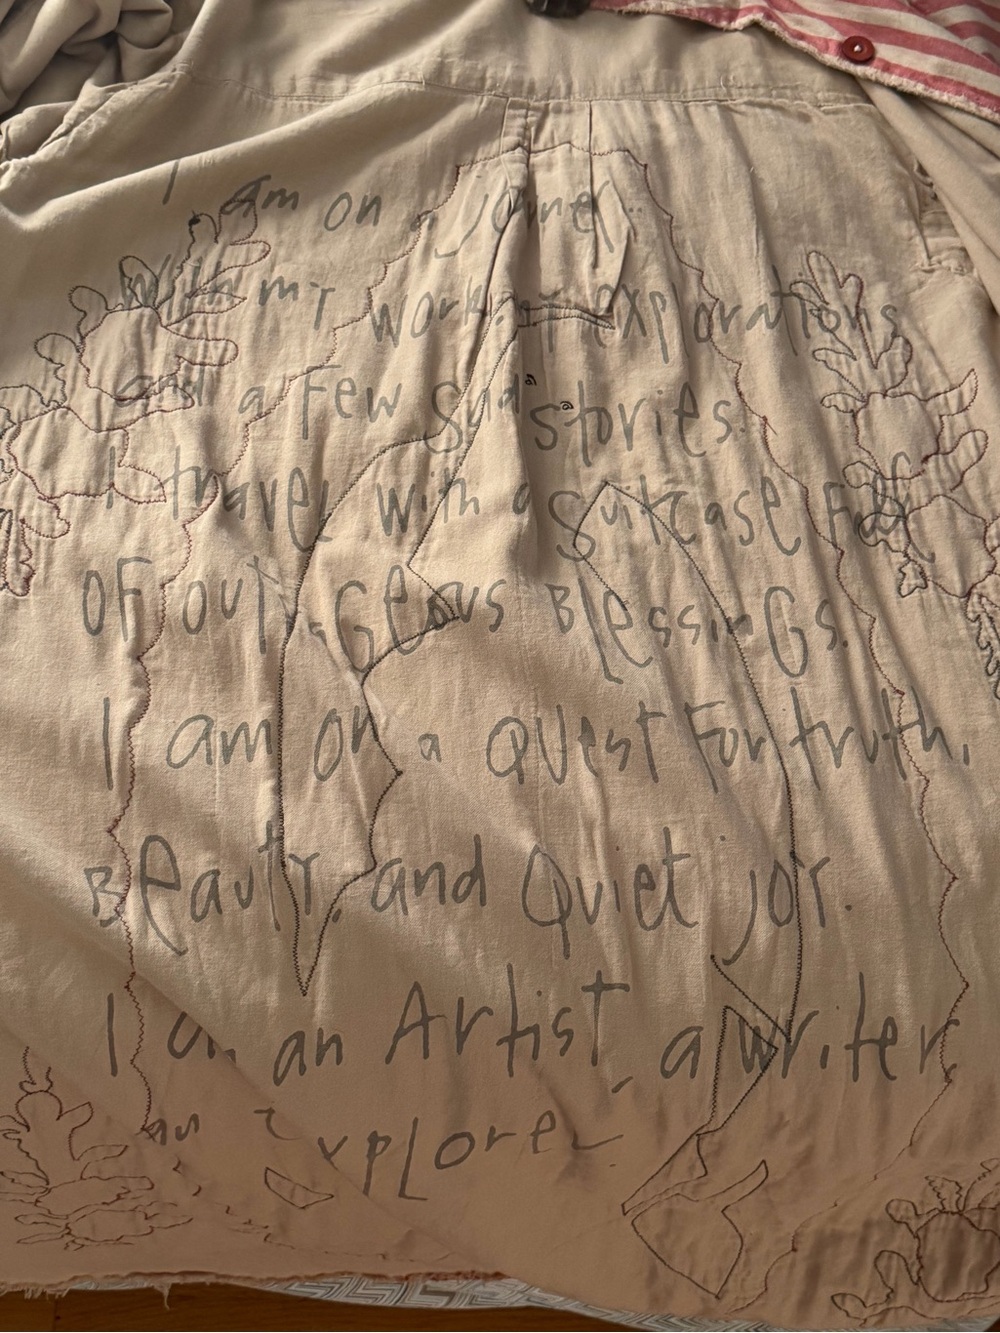 I am on a journey
with my work of explorations
and a Few Sad stories.
I travel with a Suitcase Full
OF outrageous Blessings.
I am on a Quest For truth,
Beauty, and Quiet joy.
I am an Artist, a writer,
an explorer